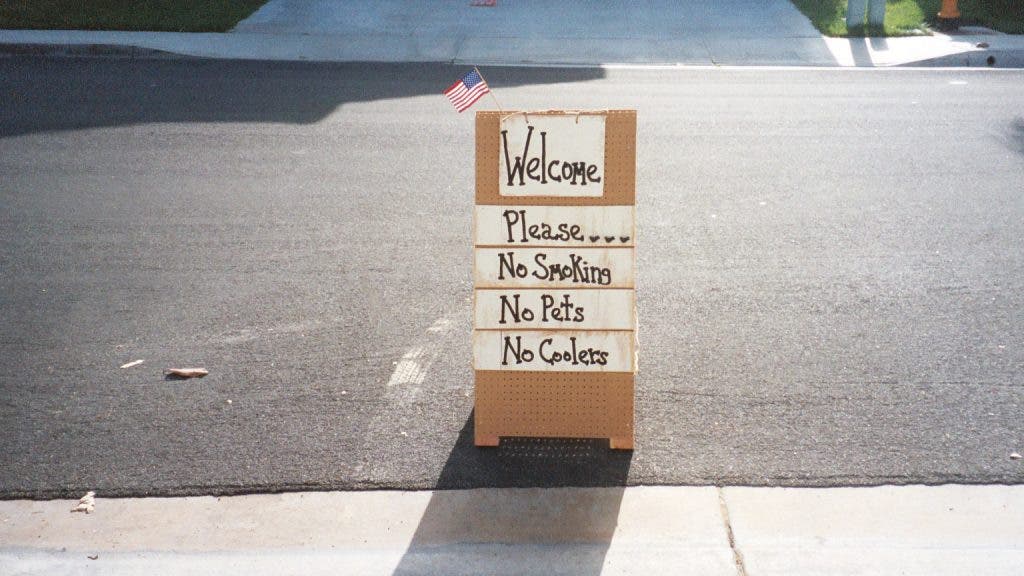 Welcome
Please...
No Smoking
No Pets
No Coolers